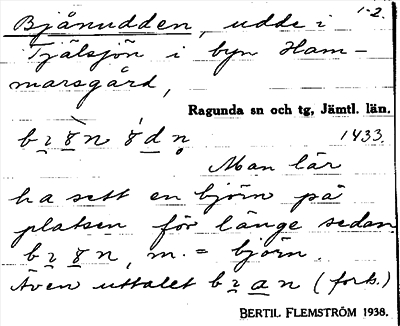 Bjånudden, udde i 1-2.
Tjälsjön i byn Ham-
marsgård,
Ragunda sn och tg, Jämtl. län.
1433
Man lär
ha sett en björn på
platsen för länge sedan.
m. = björn.
Även uttalet (forts.)
BERTIL FLEMSTRÖM 1938.